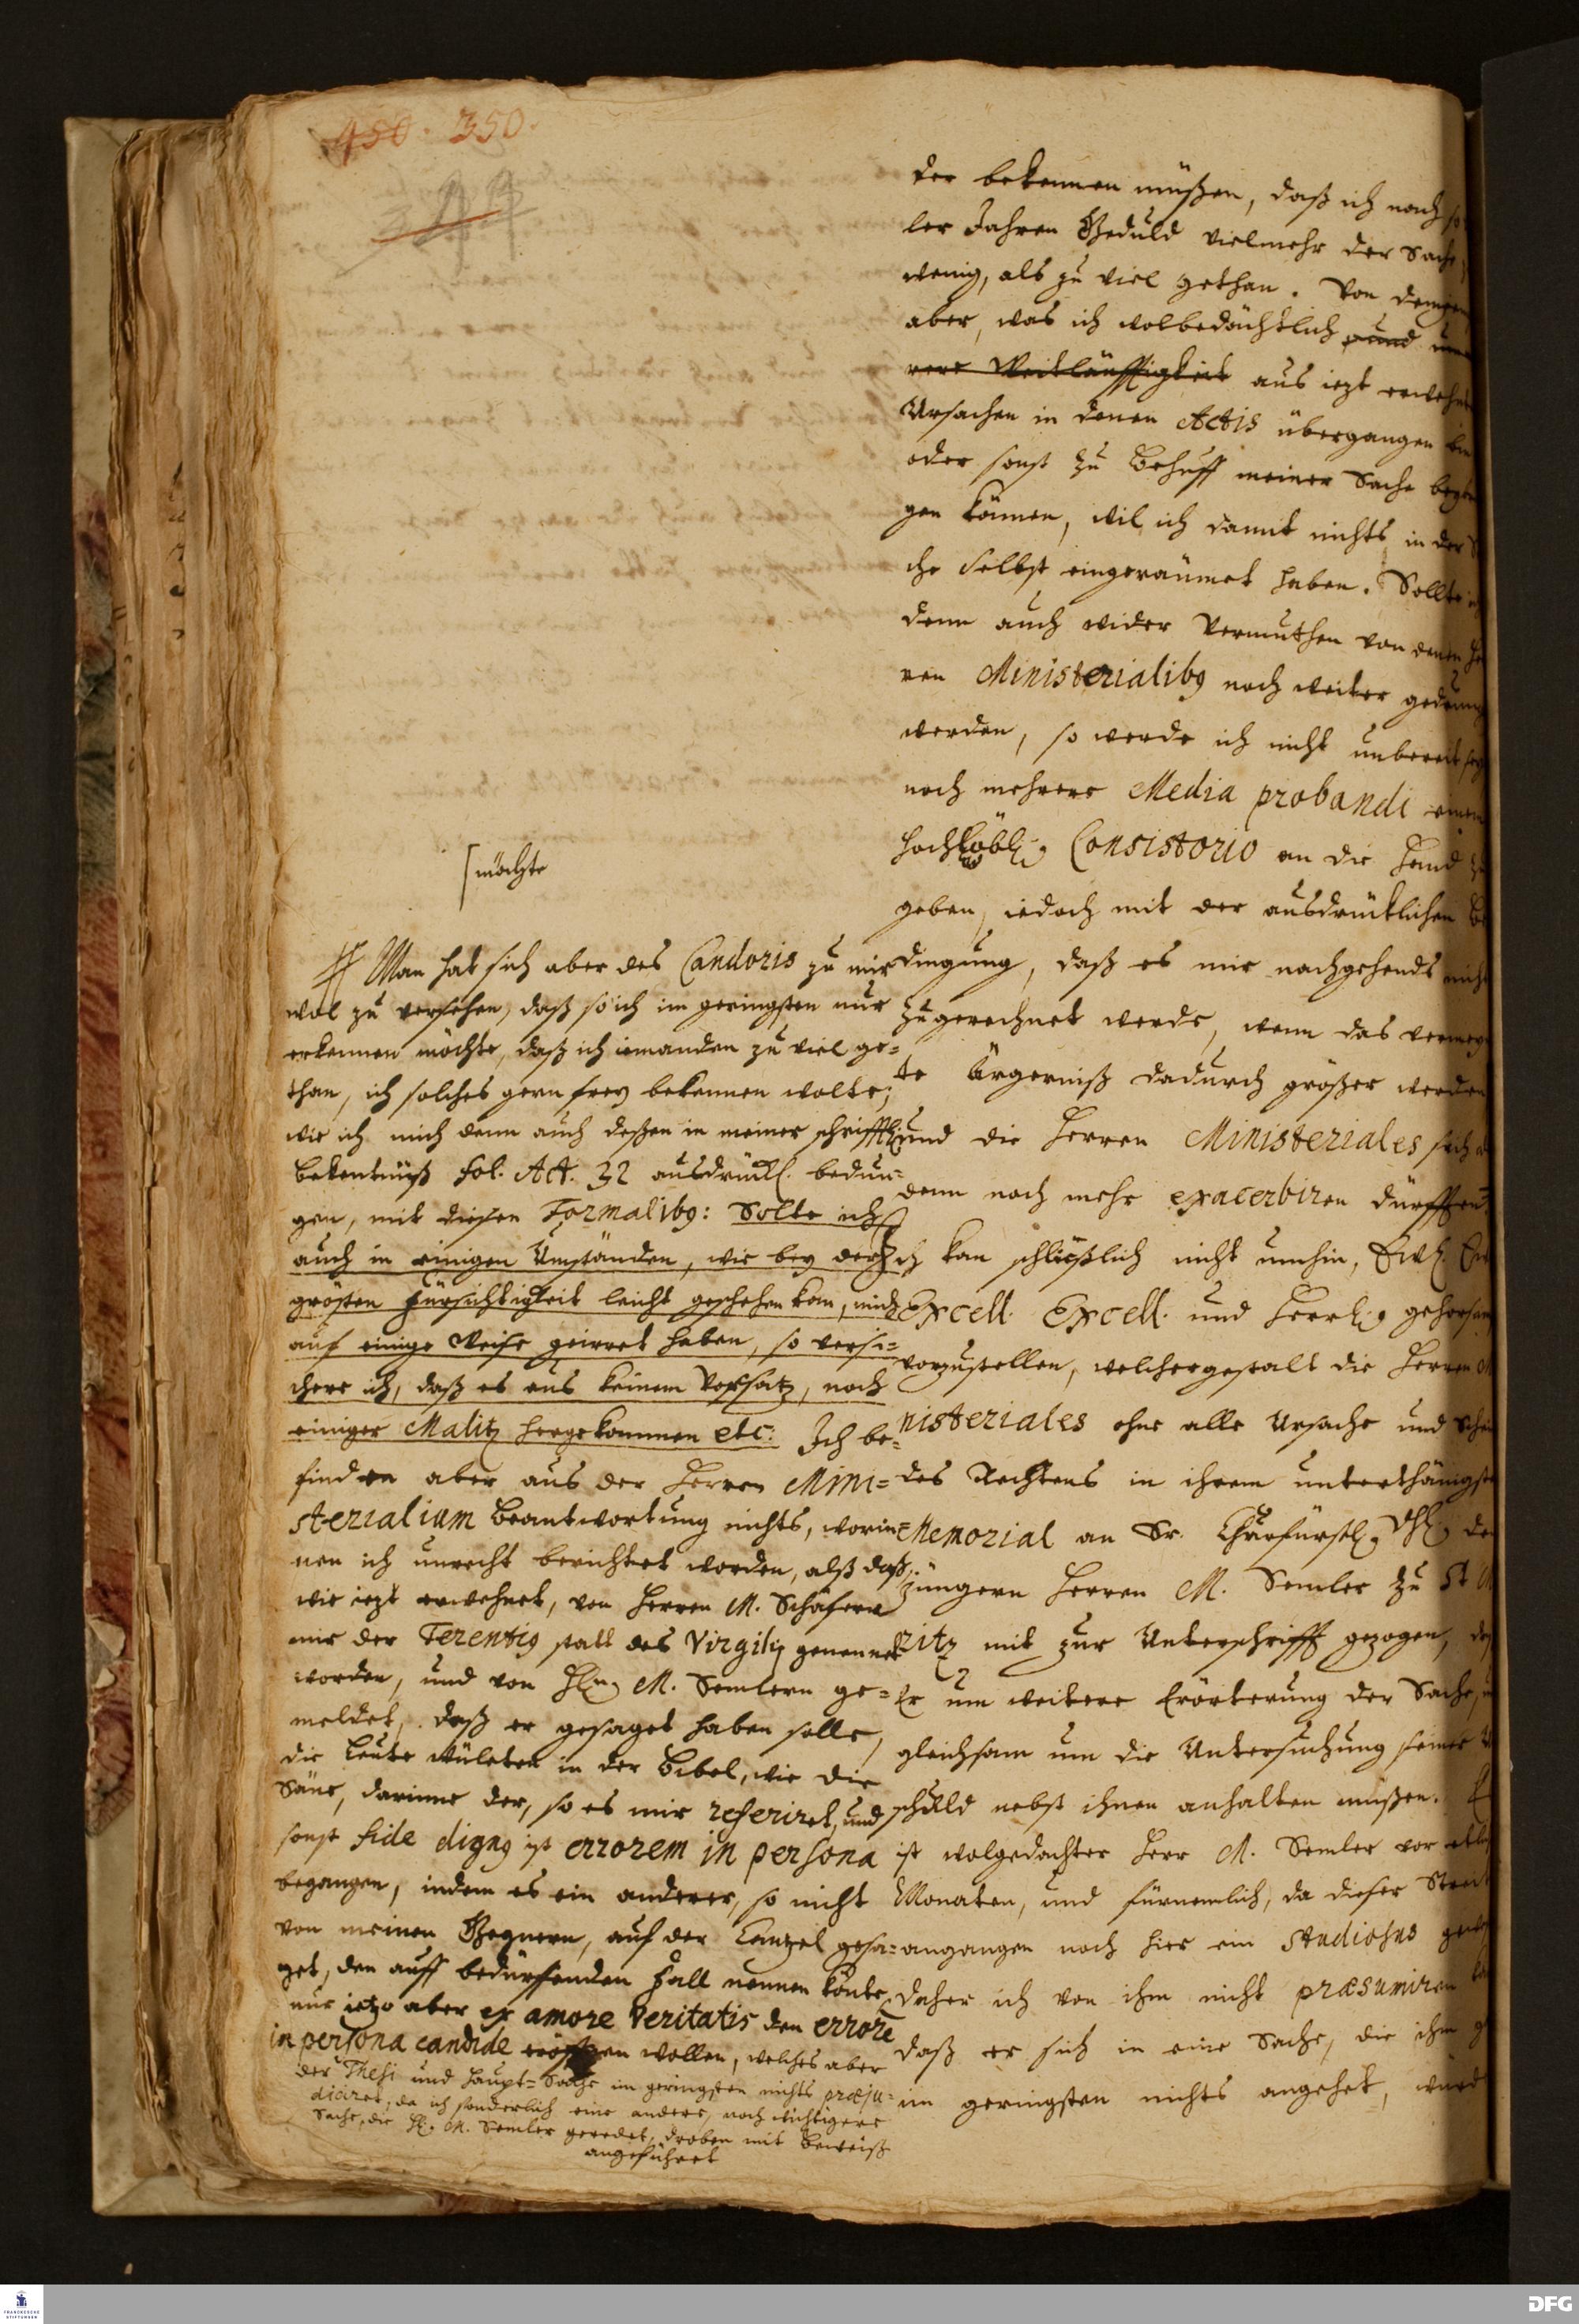 450. 350.
344
der bekennen müßen, daß ich nach so
ler Jahren Geduld vielmehr der Sache
wenig, als zu viel gethan. Von demjen
aber, was ich wolbedächtlich und
rere Weitläuffigkeit aus iezt erwehnt
Ursachen in denen Actis übergangen bin
oder sonst zu Behuff meiner Sache
gen können, wil ich damit nichts in der S
che selbst eingeräumet haben. Sollte ich
denn auch wider Vermuthen von denen He
ren Ministerialibꝰ noch weiter gedrung
werden, so werde ich nicht unbereit sey
noch mehrere Media probandi einem
Hochlöbl. Consistorio an die Hand zu
geben, iedoch mit der ausdrücklichen Be
dingung, daß es mir nachgehends nicht
zugerechnet werde, wenn das vermey
te Ärgerniß dadurch größer werden
und die Herren Ministeriales sich
denn noch mehr exacerbiren dürfften.
Ich kan schließlich nicht umhin, Ew.
Excell. Excell. und Herrl. gehorsam
vorzustellen, welchergestalt die Herren Mi
nisteriales ohne alle Ursache und Schein
des Rechtens in ihrem unterthänigste
Memorial an Sr. Churfürstl. Dhl. de
jüngern Herren M. Semler zu St. M
ritz mit zur Unterschrifft gezogen, daß
Er um weitere Erörterung der Sache,
gleichsam um die Untersuchung seiner U
schuld nebst ihnen anhalten müßen. E
ist wolgedachter Herr M. Semler vor etl
Monaten, und fürnemlich, da dieser Streit
angangen noch hier ein Studiosus gewes
daher ich von ihm nicht præsumiren kan
daß er sich in eine Sache, die ihm g
im geringsten nichts angehet, würd
möchte
Man hat sich aber des Candoris zu mir
wol zu versehen, daß so ich im geringsten nur
erkennen möchte, daß ich iemanden zu viel ge=
than, ich solches gern frey bekennen wolte;
wie ich mich denn auch deßen in meiner schrifftl.
Bekentnüß Fol. Act. 32 ausdrückl. bedun=
gen, mit diesen Formalibꝰ: Solte ich
auch in einigen Umständen, wie bey der
grösten Fürsichtigkeit leicht geschehen kan, mich
auf einige Weise geirret haben, so versi=
chere ich, daß es aus keinem Vorsatz, noch
einiger Malitz hergekommen etc. Ich be=
finden aber aus der Herren Mini=
sterialium Beantwortung nichts, worin=
nen ich unrecht berichtet worden, alß daß,
wie iezt erwehnet, von Herren M. Schäfern
mir der Terentiꝰ statt des Virgilij genennet
worden, und von Hln. M. Semlern ge=
meldet, daß er gesaget haben solle,
die Leute wületen in der Bibel, wie die
Säue, darinne der, so es mir referiret, und
sonst fide dignꝰ ist errorem in persona
begangen, indem es ein anderer, so nicht
von meinen Gegnern, auf der Cantzel gesa=
get, den auff bedürffenden Fall nennen könte,
nur ietzo aber ex amore veritatis den errorē
in persona candide eröffnen wollen, welches aber
der Thesi und Haupt=Sache im geringsten nichts præju=
diciret, da ich sonderlich eine andere, noch wichtigere
Sache, die H. M. Semler geredet, droben mit Beweiß
angeführet
FRANCKESCHE STIFTUNGEN
DFG